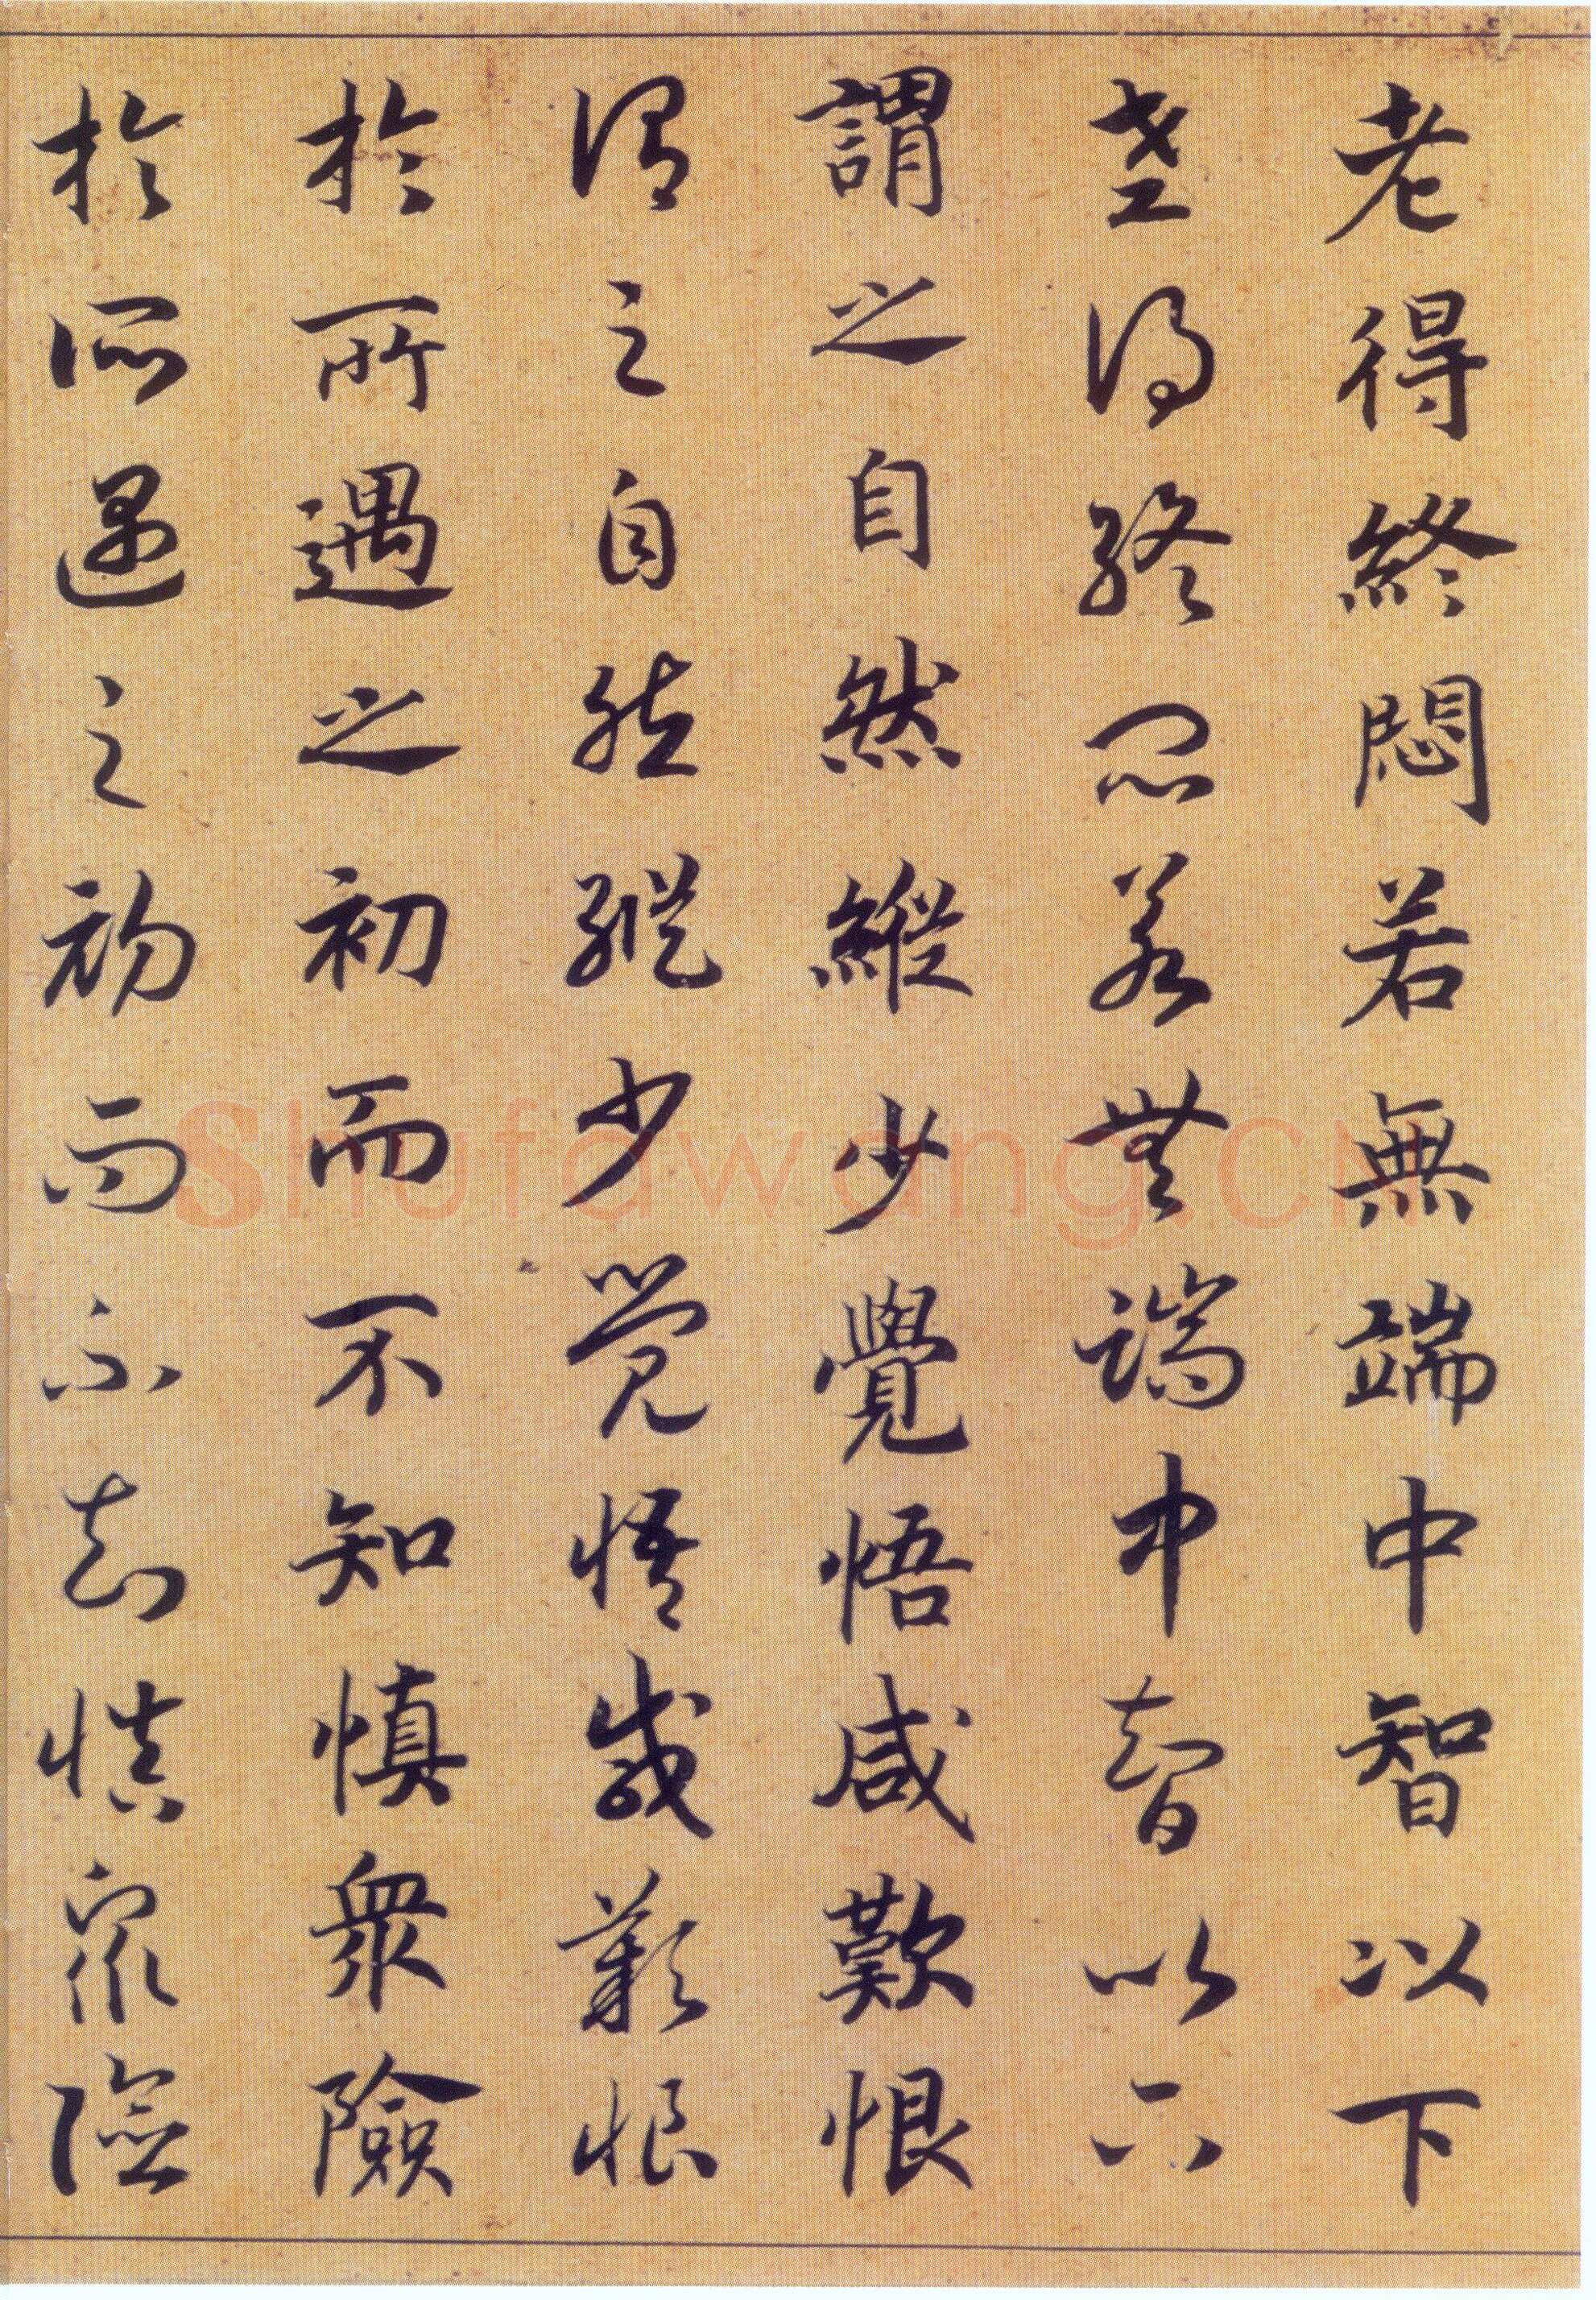 老得終悶若無端中智以下
老得終悶若無端中智以下
謂之自然縱少覺悟咸歎恨
謂之自然縱少覺悟咸歎恨
於所遇之初而不知慎衆險
於所遇之初而不知慎衆險
Shufawang.CN